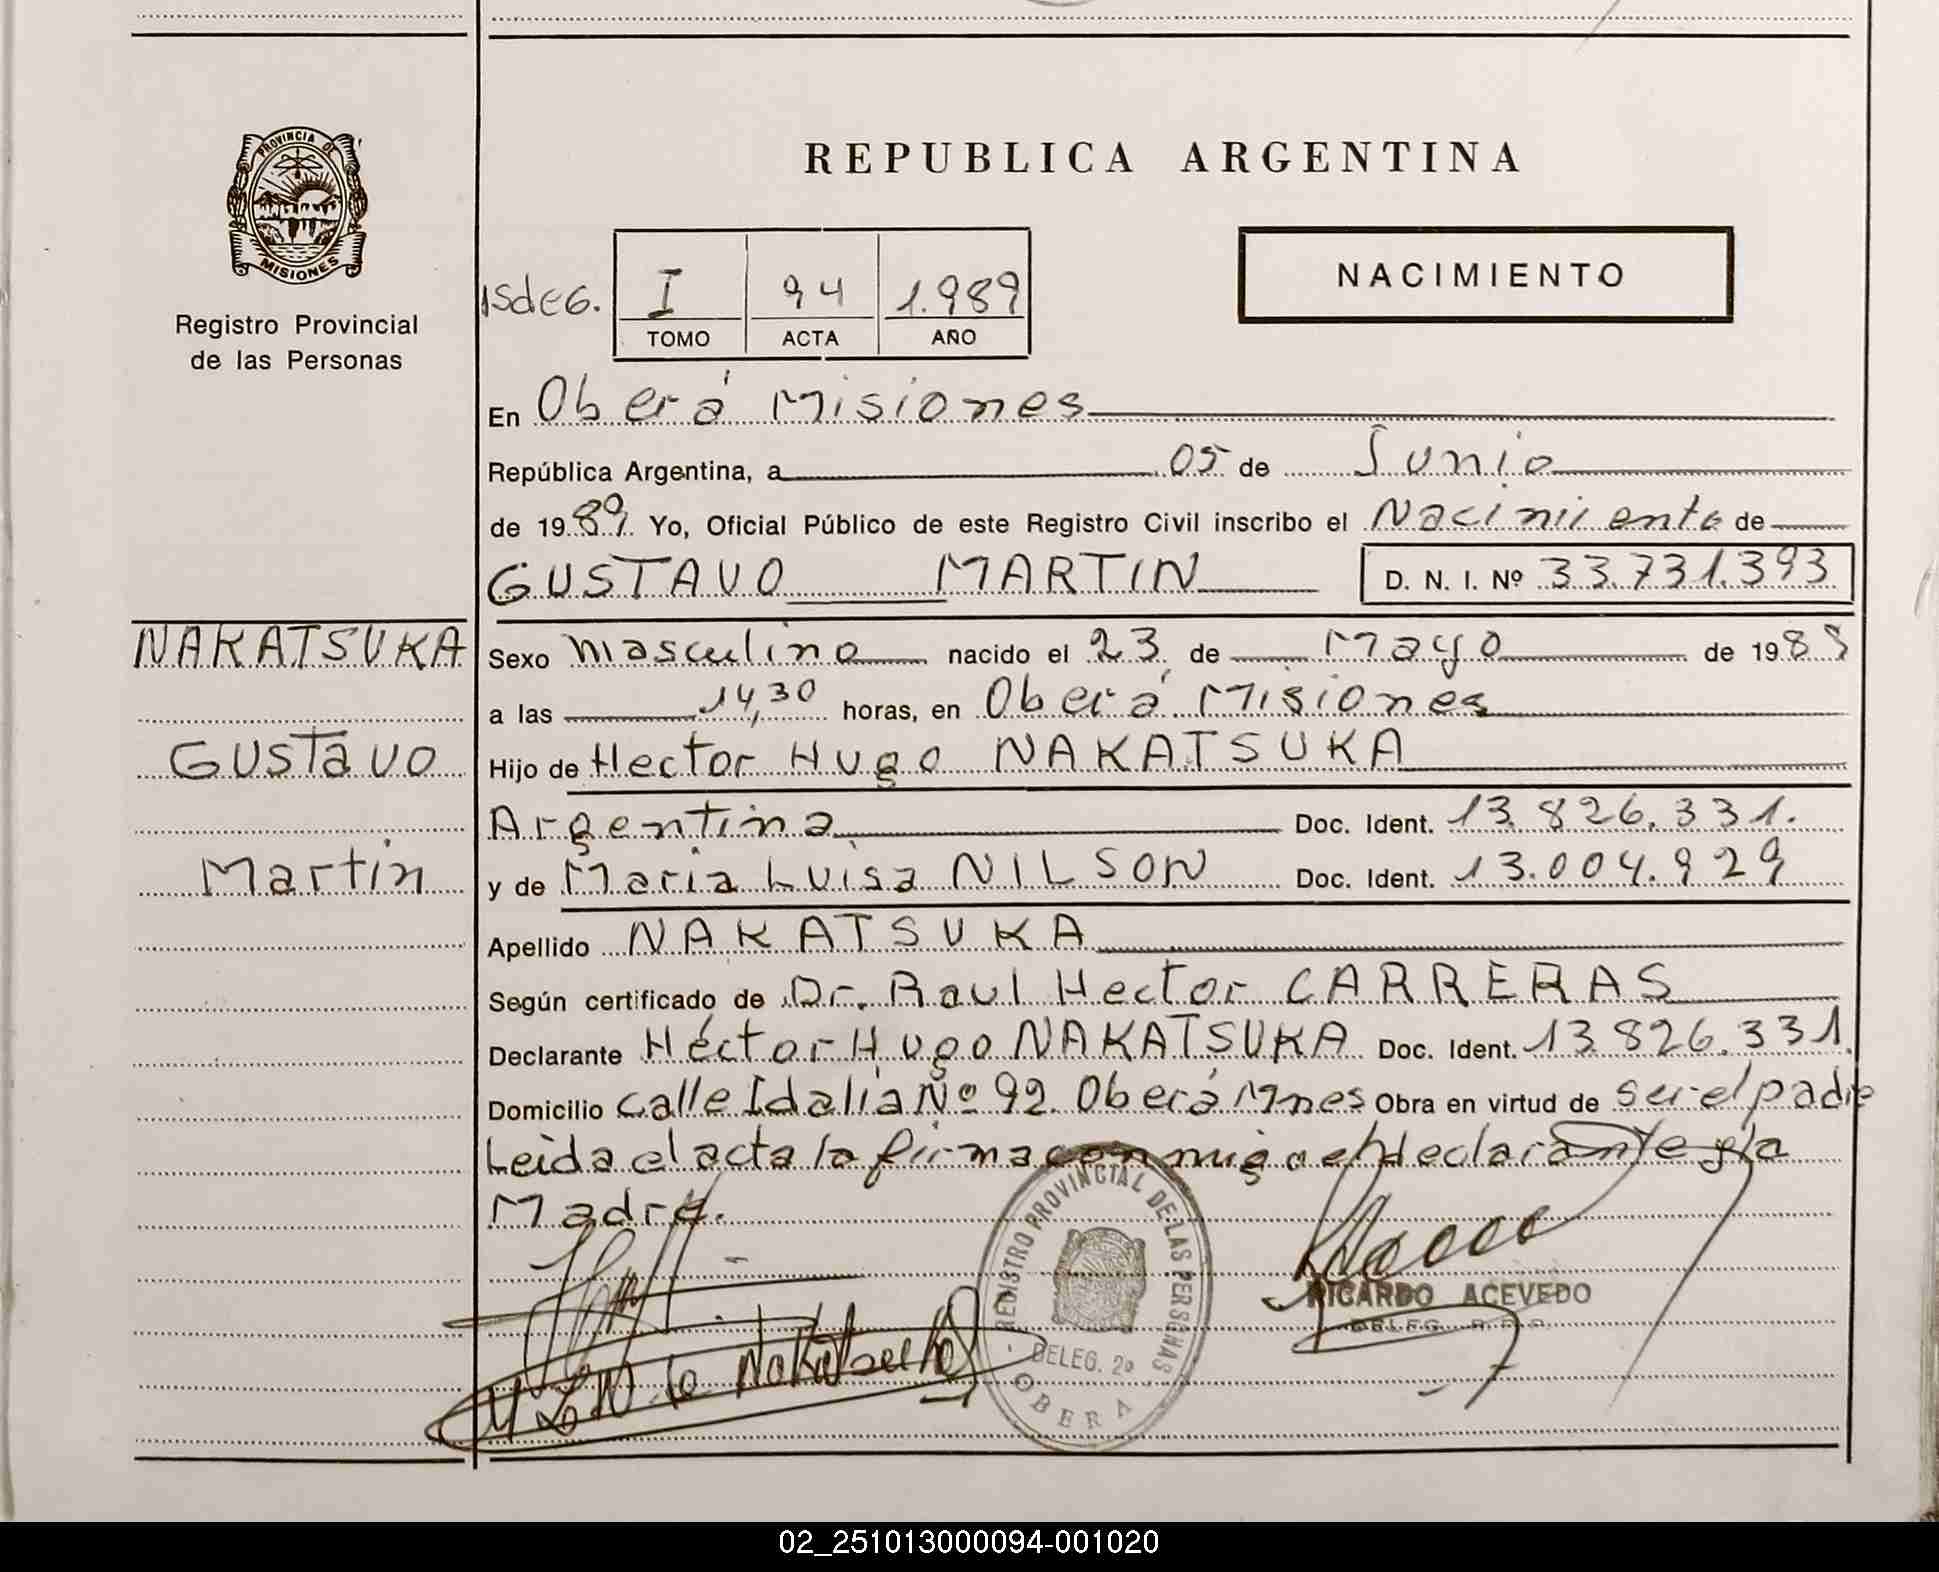 PROVINCIA DE
MISIONES
Registro Provincial
de las Personas
REPUBLICA ARGENTINA
NACIMIENTO
I 94 1.989
TOMO ACTA AÑO
En Oberá Misiones
República Argentina, a 05 de Junio
de 1989. Yo, Oficial Público de este Registro Civil inscribo el Nacimiento de
GUSTAVO MARTIN D. N. I. Nº 33.731.393
NAKATSUKA
Gustavo
Martin
Sexo Masculino nacido el 23 de Mayo de 1989
a las 14,30 horas, en Oberá Misiones
Hijo de Hector Hugo NAKATSUKA
Argentina Doc. Ident. 13.826.331.
y de Maria Luisa NILSON Doc. Ident. 13.004.929
Apellido NAKATSUKA
Según certificado de Dr. Raul Hector CARRERAS
Declarante Héctor Hugo NAKATSUKA Doc. Ident. 13.826.331.
Domicilio calle Idalia Nº 92 Oberá Mnes Obra en virtud de ser el padre
Leida el acta la firma conmigo el declarante y la
Madre.
REGISTRO PROVINCIAL DE LAS PERSONAS
DELEG. 2º
OBERA
RICARDO ACEVEDO
02_251013000094-001020